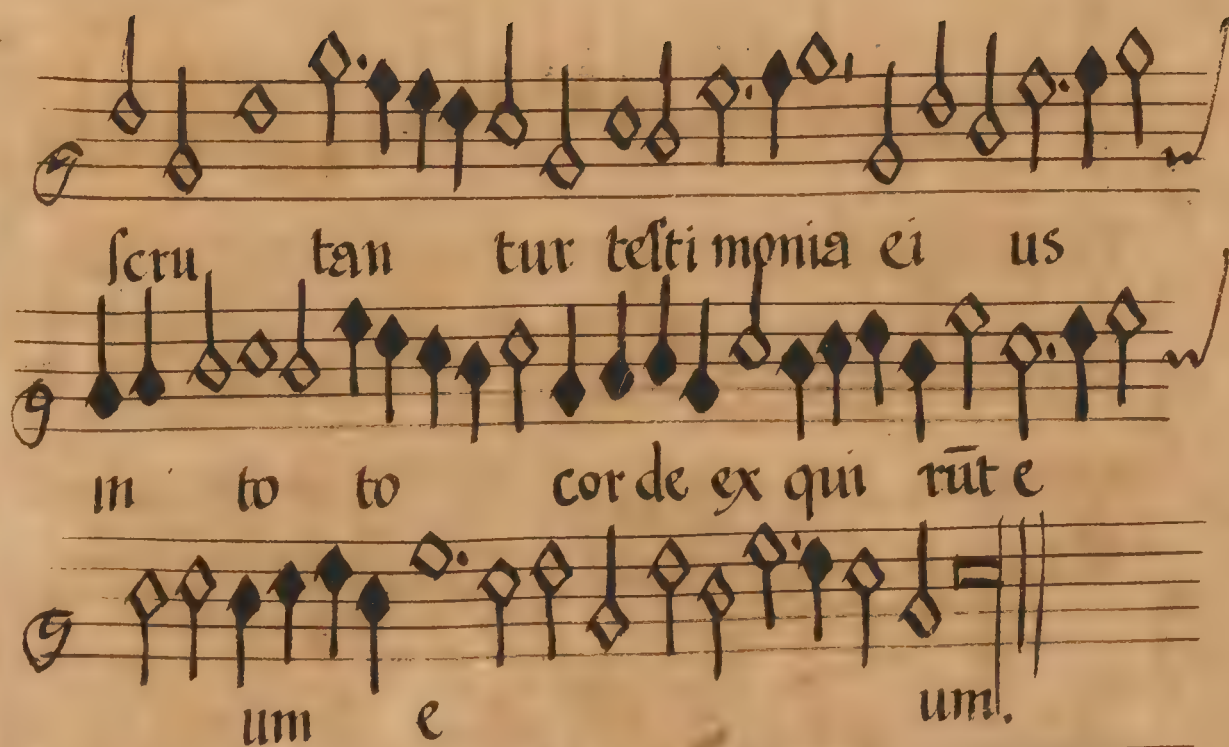 ſcru tan tur teſti monia ei us
in to to cor de ex qui rūt e
um e um.